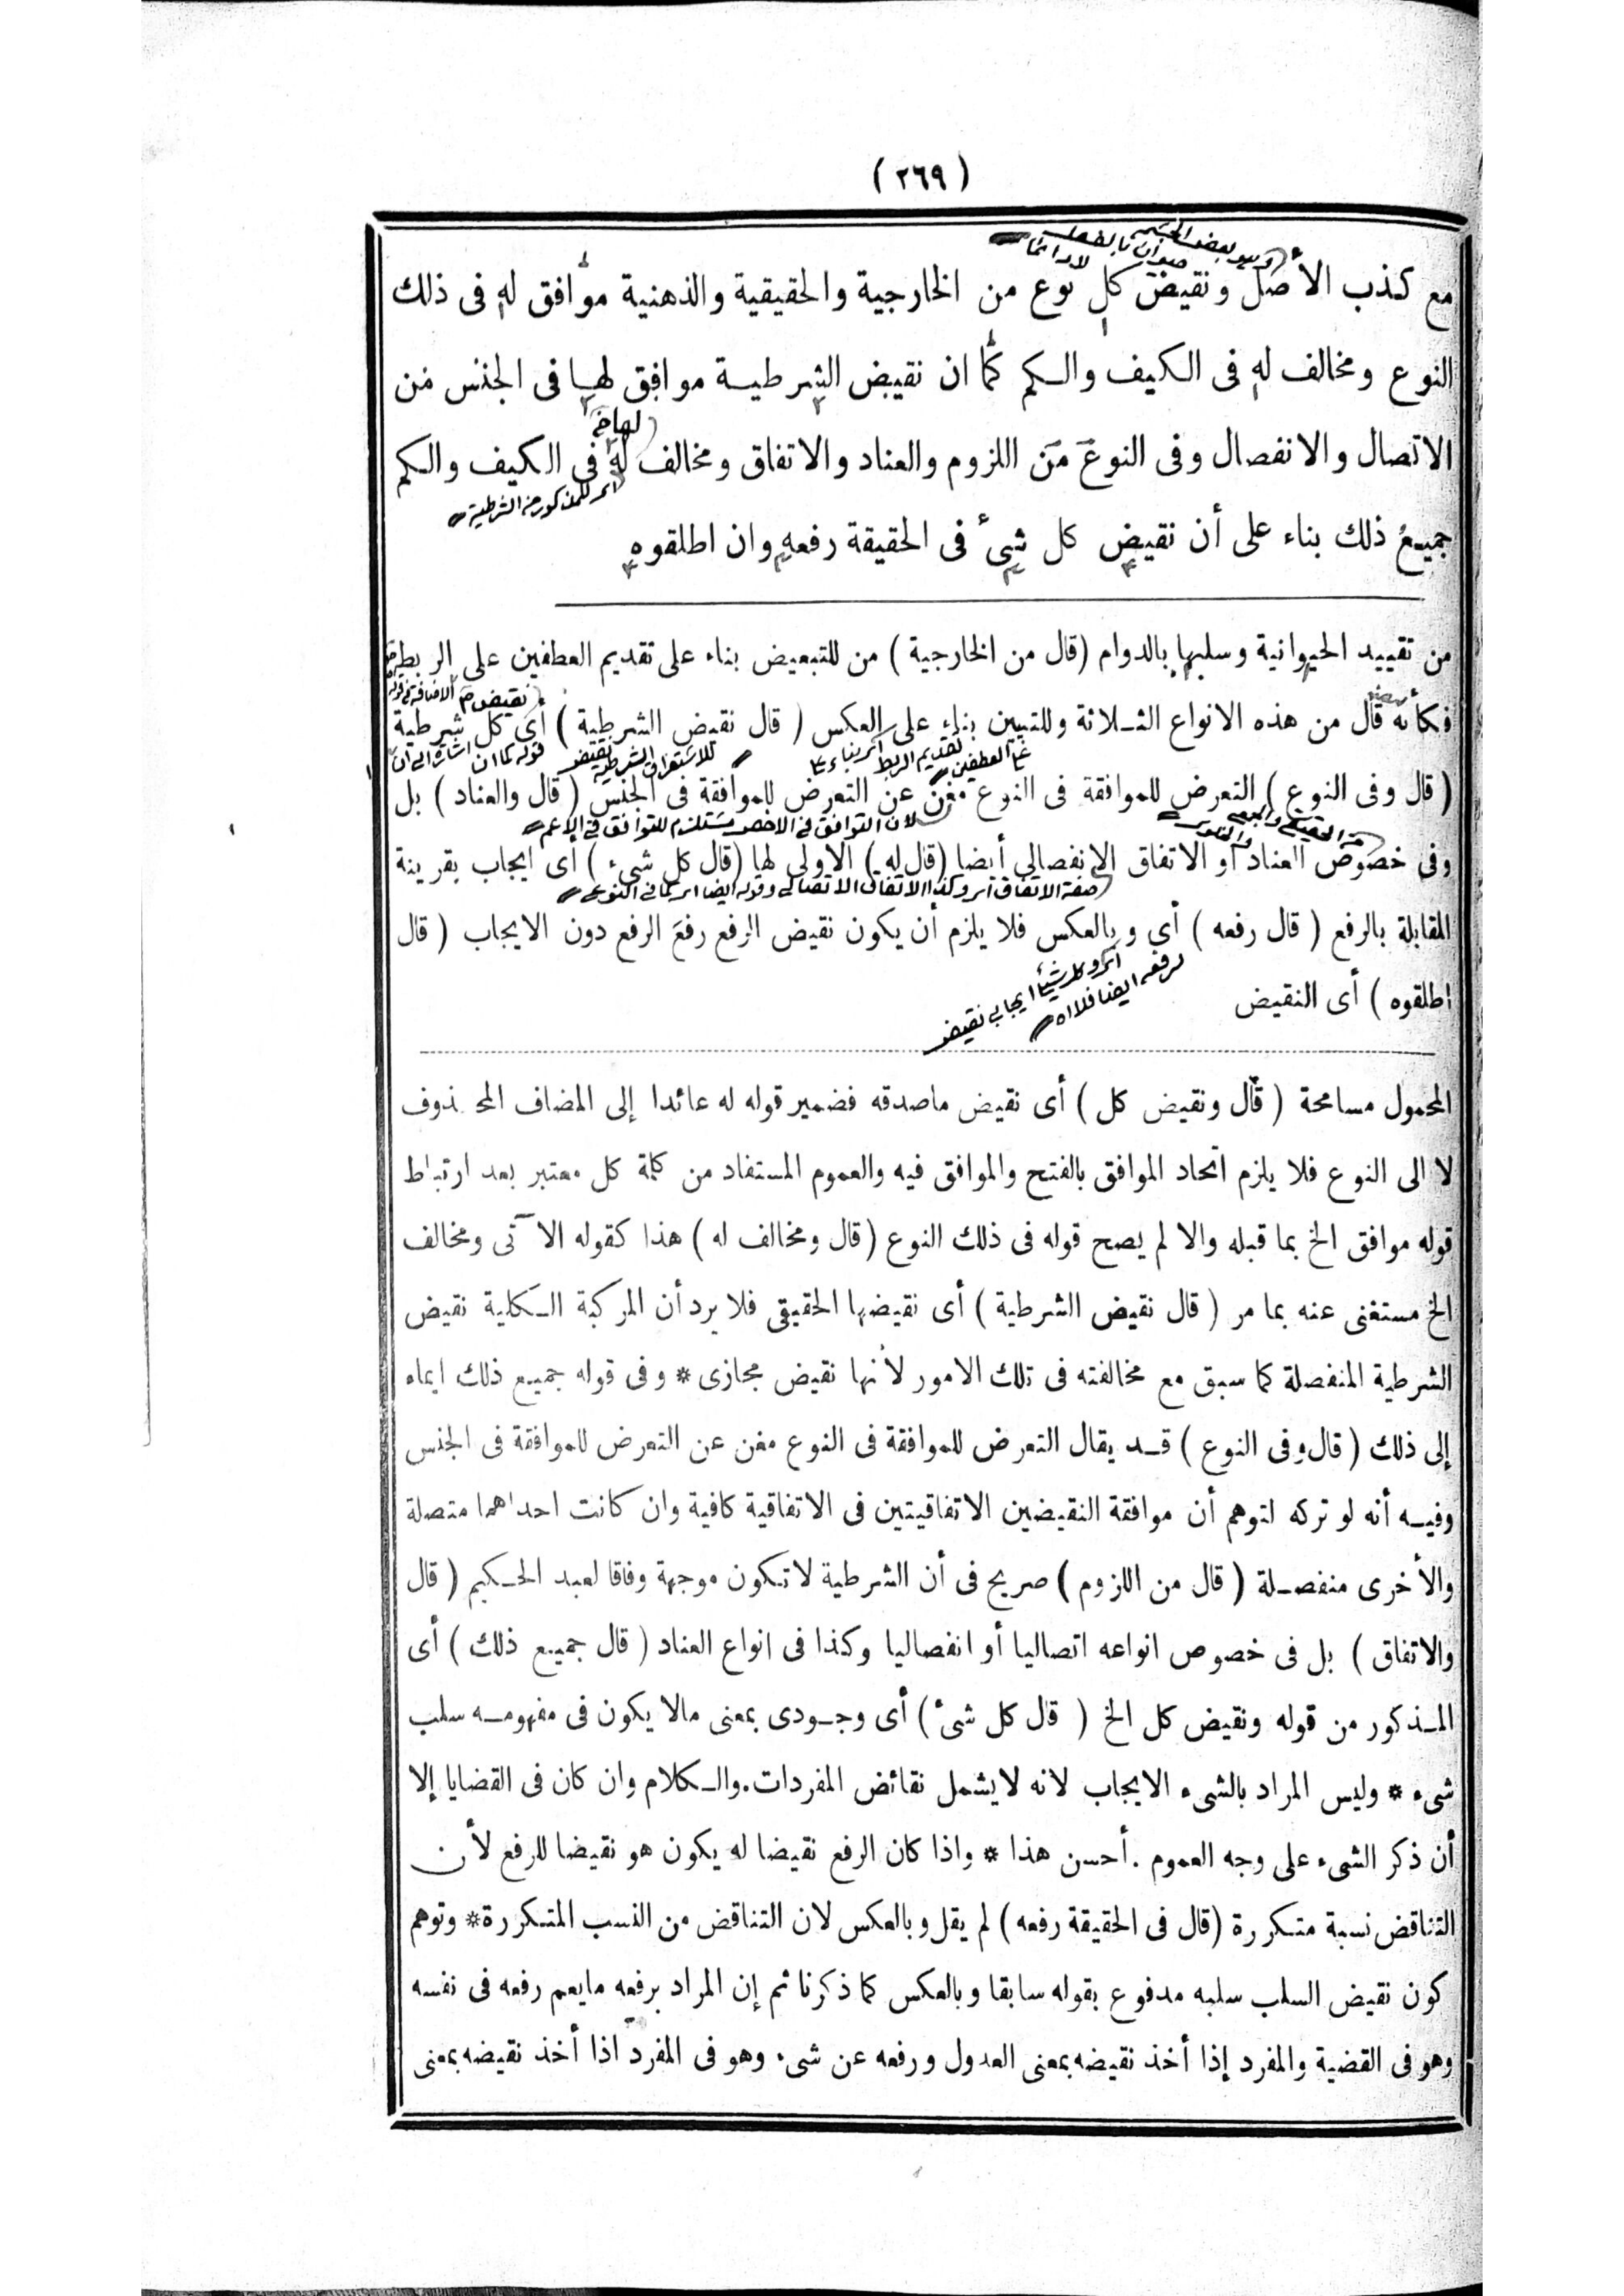 ( ٢٦٩ )
مع كذب الأصل ونقيض كل نوع من الخارجية والحقيقية والذهنية موافق له فى ذلك
النوع ومخالف له فى الكيف والكم كما ان نقيض الشرطية موافق لها فى الجنس من
الاتصال والانفصال وفى النوع من اللزوم والعناد والاتفاق ومخالف له فى الكيف والكم
جميع ذلك بناء على أن نقيض كل شئ فى الحقيقة رفعه وان اطلقوه
من تقييد الحيوانية وسلبها بالدوام (قال من الخارجية) من للتبعيض بناء على تقديم العطفين على الربط
فكأنه قال من هذه الانواع الثلاثة وللتبيين بناء على العكس ( قال نقيض الشرطية ) أى كل شرطية
( قال وفى النوع ) التعرض للموافقة فى النوع مغن عن التعرض للموافقة فى الجنس ( قال والعناد ) بل
لان التوافق فى الاخص مستلزم للتوافق فى الاعم
وفى خصوص العناد أو الاتفاق الانفصالى أيضا (قال له) الاولى لها (قال كل شىء) أى ايجاب بقرينة
المقابلة بالرفع ( قال رفعه ) أى وبالعكس فلا يلزم أن يكون نقيض الرفع رفع الرفع دون الايجاب ( قال
اطلقوه ) أى النقيض
المحمول مسامحة ( قال ونقيض كل ) أى نقيض ماصدقه فضمير قوله له عائدا إلى المضاف المحذوف
لا الى النوع فلا يلزم اتحاد الموافق بالفتح والموافق فيه والعموم المستفاد من كلمة كل معتبر بعد ارتباط
قوله موافق الخ بما قبله والا لم يصح قوله فى ذلك النوع (قال ومخالف له) هذا كقوله الآتى ومخالف
الخ مستغنى عنه بما مر ( قال نقيض الشرطية ) أى نقيضها الحقيقى فلا يرد أن المركبة الكلية نقيض
الشرطية المنفصلة كما سبق مع مخالفته فى تلك الامور لأنها نقيض مجازى * وفى قوله جميع ذلك ايماء
إلى ذلك ( قال وفى النوع ) قد يقال التعرض للموافقة فى النوع مغن عن التعرض للموافقة فى الجنس
وفيه أنه لو تركه لتوهم أن موافقة النقيضين الاتفاقيتين فى الاتفاقية كافية وان كانت احداهما متصلة
والأخرى منفصلة ( قال من اللزوم ) صريح فى أن الشرطية لا تكون موجهة وفاقا لعبد الحكيم ( قال
والاتفاق ) بل فى خصوص انواعه اتصاليا أو انفصاليا وكذا فى انواع العناد ( قال جميع ذلك ) أى
المذكور من قوله ونقيض كل الخ ( قال كل شئ ) أى وجودى بمعنى مالا يكون فى مفهومه سلب
شىء * وليس المراد بالشىء الايجاب لانه لايشمل نقائض المفردات.والكلام وان كان فى القضايا إلا
أن ذكر الشىء على وجه العموم . أحسن هذا * واذا كان الرفع نقيضا له يكون هو نقيضا للرفع لأن
التناقض نسبة متكررة (قال فى الحقيقة رفعه) لم يقل وبالعكس لان التناقض من النسب المتكررة* وتوهم
كون نقيض السلب سلبه مدفوع بقوله سابقا وبالعكس كما ذكرنا ثم إن المراد برفعه مايعم رفعه فى نفسه
وهو فى القضية والمفرد إذا أخذ نقيضه بمعنى العدول ورفعه عن شىء وهو فى المفرد اذا أخذ نقيضه بمعنى